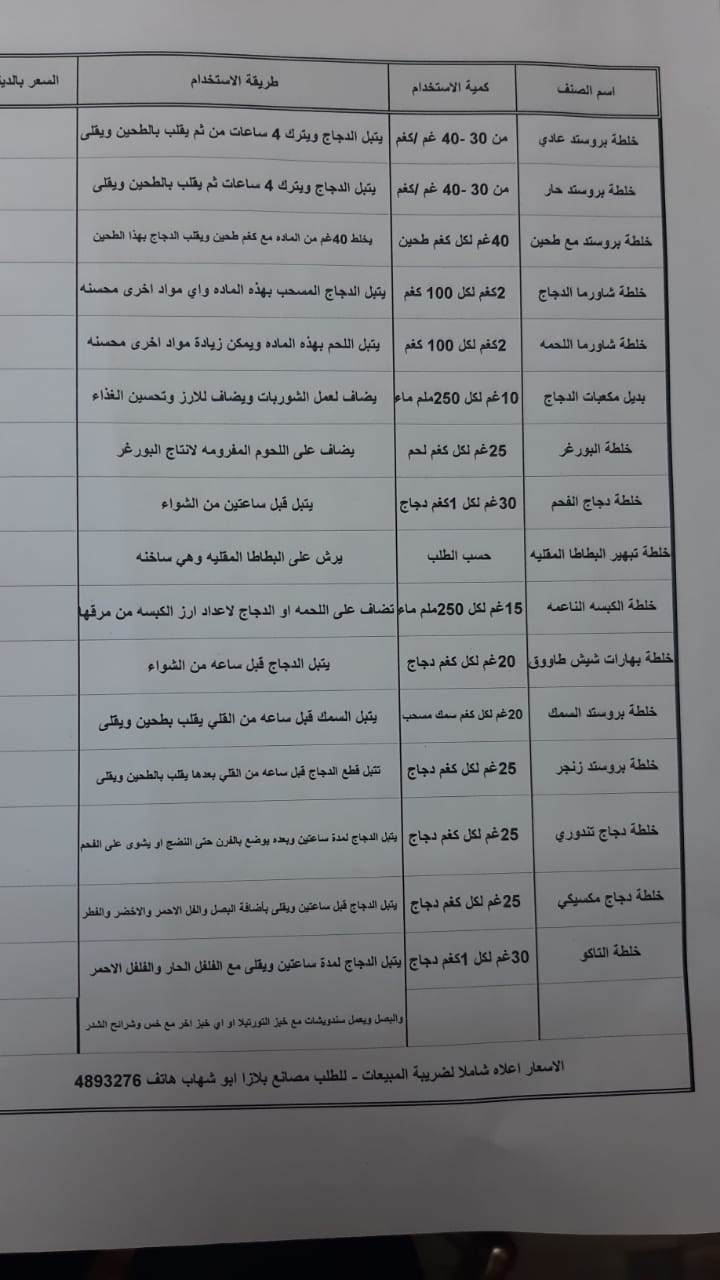 اسم الصنف كمية الاستخدام طريقة الاستخدام السعر
خلطة بروستد عادي من 30 -40 غم /كغم يتبل الدجاج ويترك 4 ساعات من ثم يقلب بالطحين ويقلى
خلطة بروستد حار من 30 -40 غم /كغم يتبل الدجاج ويترك 4 ساعات ثم يقلب بالطحين ويقلى
خلطة بروستد مع طحين 40غم لكل كغم طحين يخلط 40غم من الماده مع كغم طحين ويقلب الدجاج بهذا الطحين
خلطة شاورما الدجاج 2كغم لكل 100 كغم يتبل الدجاج المسحب بهذه الماده واي مواد اخرى محسنه
خلطة شاورما اللحمه 2كغم لكل 100 كغم يتبل اللحم بهذه الماده ويمكن زيادة مواد اخرى محسنه
بديل مكعبات الدجاج 10غم لكل 250ملم ماء يضاف لعمل الشوربات ويضاف للارز وتحسين الغذاء
خلطة البورغر 25غم لكل كغم لحم يضاف على اللحوم المفرومه لانتاج البورغر
خلطة دجاج الفحم 30غم لكل 1كغم دجاج يتبل قبل ساعتين من الشواء
خلطة تبهير البطاطا المقليه حسب الطلب يرش على البطاطا المقليه وهي ساخنه
خلطة الكبسه الناعمه 15غم لكل 250ملم ماء تضاف على اللحمه او الدجاج لاعداد ارز الكبسه من مرقها
خلطة بهارات شيش طاووق 20غم لكل كغم دجاج يتبل الدجاج قبل ساعه من الشواء
خلطة بروستد السمك 20غم لكل كغم سمك مسحب يتبل السمك قبل ساعه من القلي يقلب بطحين ويقلى
خلطة بروستد زنجر 25غم لكل كغم دجاج تتبل قطع الدجاج قبل ساعه من القلي بعدها يقلب بالطحين ويقلى
خلطة دجاج تندوري 25غم لكل كغم دجاج يتبل الدجاج لمدة ساعتين وبعده يوضع بالفرن حتى النضج او يشوى على الفحم
خلطة دجاج مكسيكي 25غم لكل كغم دجاج يتبل الدجاج قبل ساعتين ويقلى بأضافة البصل والفل الاحمر والاخضر والفطر
خلطة التاكو 30غم لكل 1كغم دجاج يتبل الدجاج لمدة ساعتين ويقلى مع الفلفل الحار والفلفل الاحمر
والبصل ويعمل سندويشات مع خبز التورتيلا او اي خبز اخر مع خس وشرائح الشدر
الاسعار اعلاه شاملا لضريبة المبيعات - للطلب مصانع بلازا ابو شهاب هاتف 4893276